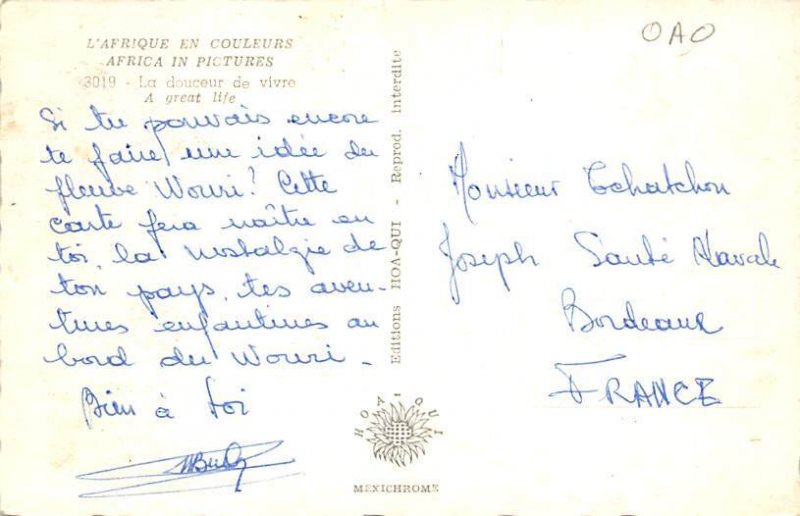 L'AFRIQUE EN COULEURS
AFRICA IN PICTURES
3019 - La douceur de vivre
A great life
Si tu pouvais encore
te faire une idée du
fleuve Wouri! Cette
carte fera naître en
toi, la nostalgie de
ton pays, tes aven-
tures enfantines au
bord du Wouri -
Bien à toi
Editions HOA-QUI - Reprod. interdite
HOA-QUI
MEXICHROME
OAO
Monsieur Tchatchou
Joseph Santé Navale
Bordeaux
FRANCE